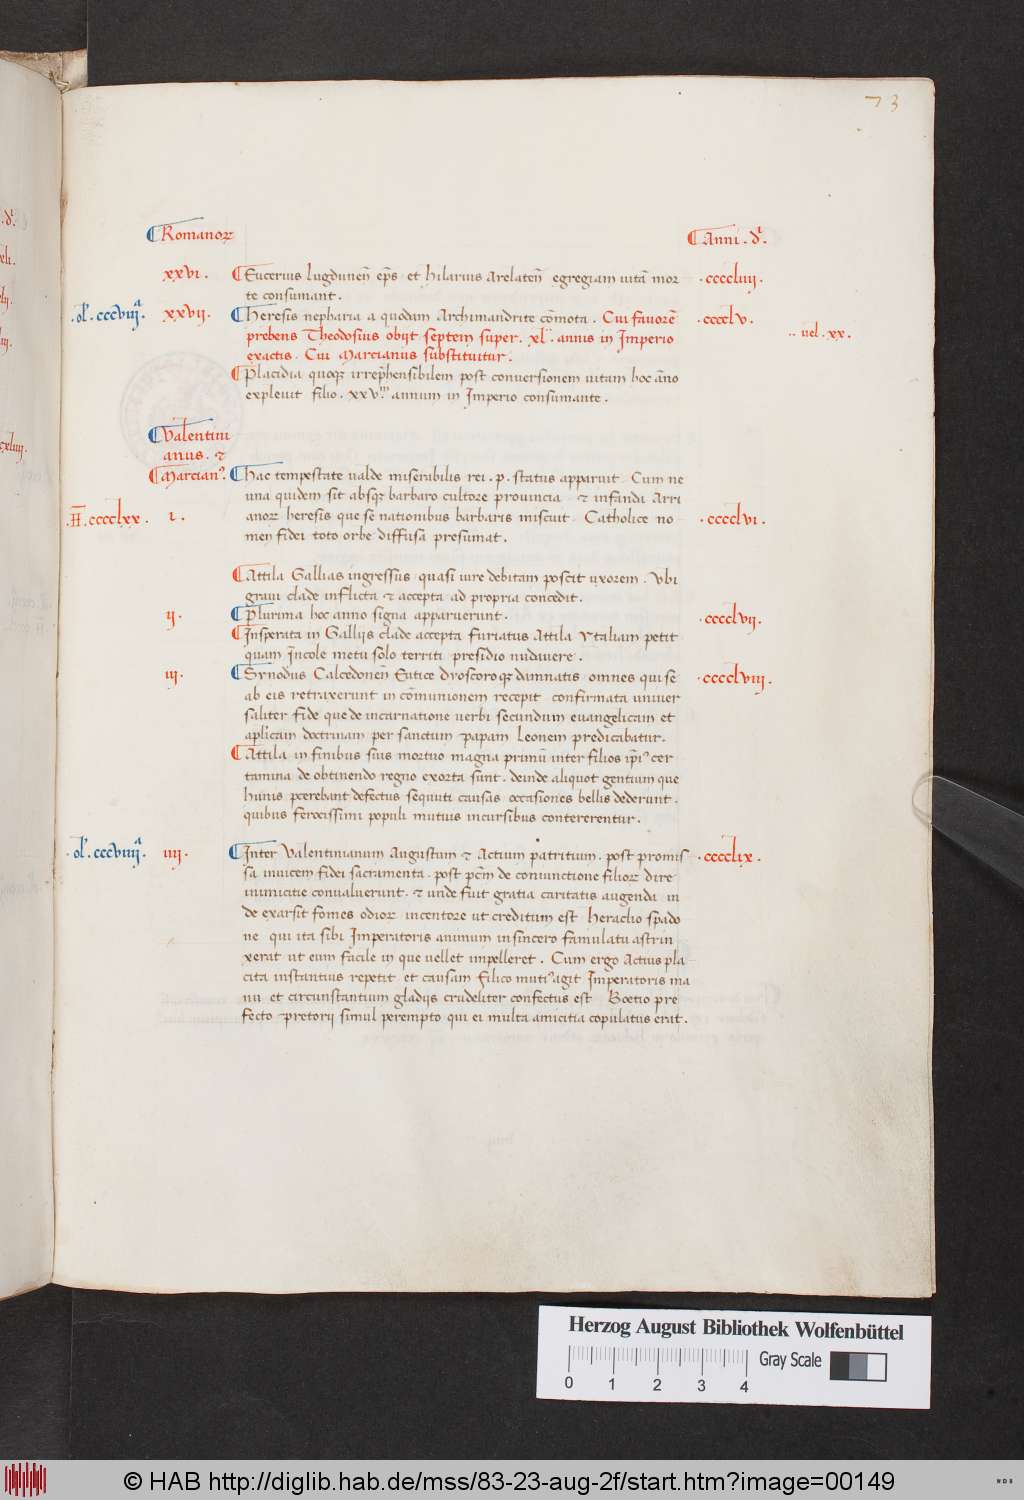 73
Romanoꝝ
Anni . dⁱ.
xxvi .
Eucerius lugdunen̄ ep̄s et hilarius arelaten̄ egregiam uitā mor
te consumant .
.ccccliiii .
.ol̓. cccviiiᵃ.
xxvii .
Heresis nepharia a quodam Archimandrite cōmota . Cui fauorē
prebens Theodosius obijt septem super . xl. annis in Imperio
exactis . Cui Marcianus substituitur .
.cccclv .
.. uel . xx .
Placidia quoqꝫ irrep̄hensibilem post conuersionem uitam hoc āno
expleuit filio . xxvᵐ annum in Imperio consumante .
Valentini
anus . ⁊
Marcian⁹.
Hac tempestate ualde miserabilis rei . p . status apparuit . Cum ne
una quidem sit absqꝫ barbaro cultore prouincia . ⁊ infandi Arri
anoꝝ heresis que se nationibus barbaris miscuit . Catholice no
men fidei toto orbe diffusa presumat .
.II̅. cccclxx .
i .
.cccclvi .
Attila Gallias ingressus quasi iure debitam poscit uxorem . Vbi
graui clade inflicta ⁊ accepta ad propria concedit .
ii .
Plurima hoc anno signa apparuerunt .
.cccclvii .
Insperata in Gallijs clade accepta furiatus Attila Ytaliam petit
quam Incole metu solo territi presidio nudauere .
iii .
Synodus Calcedonen̄ Eutice dyoscoroqꝫ damnatis . omnes qui se
ab eis retraxerunt in cōmunionem recepit . confirmata uniuer
saliter fide que de incarnatione uerbi secundum euangelicam et
ap̄licam doctrinam per sanctum papam Leonem predicabatur.
.cccclviii .
Attila in finibus suis mortuo magna primū inter filios ip̄i⁹ cer
tamina de obtinendo regno exorta sunt . deinde aliquot gentium que
hunis parebant defectus sequuti causas occasiones bellis dederunt .
quibus ferocissimi populi mutuis incursibus contererentur .
.ol̓. cccviiiiᵃ.
iiii .
Inter Valentinianum Augustum ⁊ Actium patritium . post promis
sa inuicem fidei sacramenta . post pc̄m de coniunctione filioꝝ dire
inimicitie conualuerunt . ⁊ unde fuit gratia caritatis augenda in
de exarsit fomes odioꝝ incentore ut creditum est heraclio spado
ne qui ita sibi Imperatoris animum insincero famulatu astrin
xerat ut eum facile in que uellet impelleret . Cum ergo Actius pla
cita instantius repetit et causam filico muti⁹ agit Imperatoris ma
nu et circunstantium gladijs crudeliter confectus est . Boetio pre
fecto pretorij simul perempto qui ei multa amicitia copulatus erat .
.cccclix .
Herzog August Bibliothek Wolfenbüttel
Gray Scale
0 1 2 3 4
© HAB http://diglib.hab.de/mss/83-23-aug-2f/start.htm?image=00149